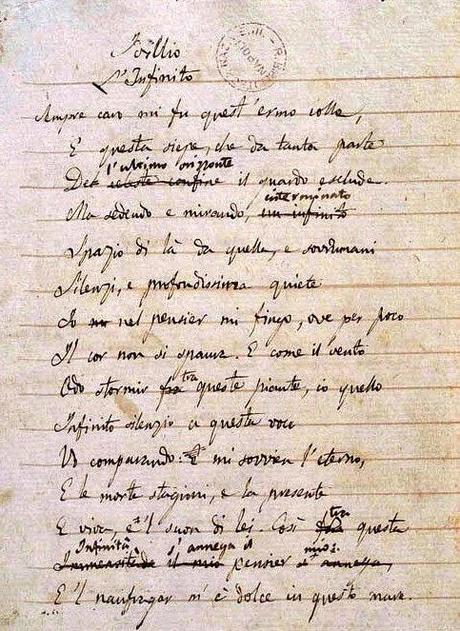 Idillio
L'Infinito
Sempre caro mi fu quest'ermo colle,
E questa siepe, che da tanta parte
l'ultimo orizonte
Del celeste confine il guardo esclude.
interminato
Ma sedendo e mirando, un infinito
Spazio di là da quella, e sovrumani
Silenzi, e profondissima quiete
Io nel pensier mi fingo, ove per poco
Il cor non si spaura. E come il vento
tra
Odo stormir fra queste piante, io quello
Infinito silenzio a questa voce
Vo comparando: E mi sovvien l'eterno,
E le morte stagioni, e la presente
tra
E viva, e 'l suon di lei. Così fra questa
Infinità s'annega il mio:
Immensitade il mio pensier s'annega,
E 'l naufragar m'è dolce in questo mare.